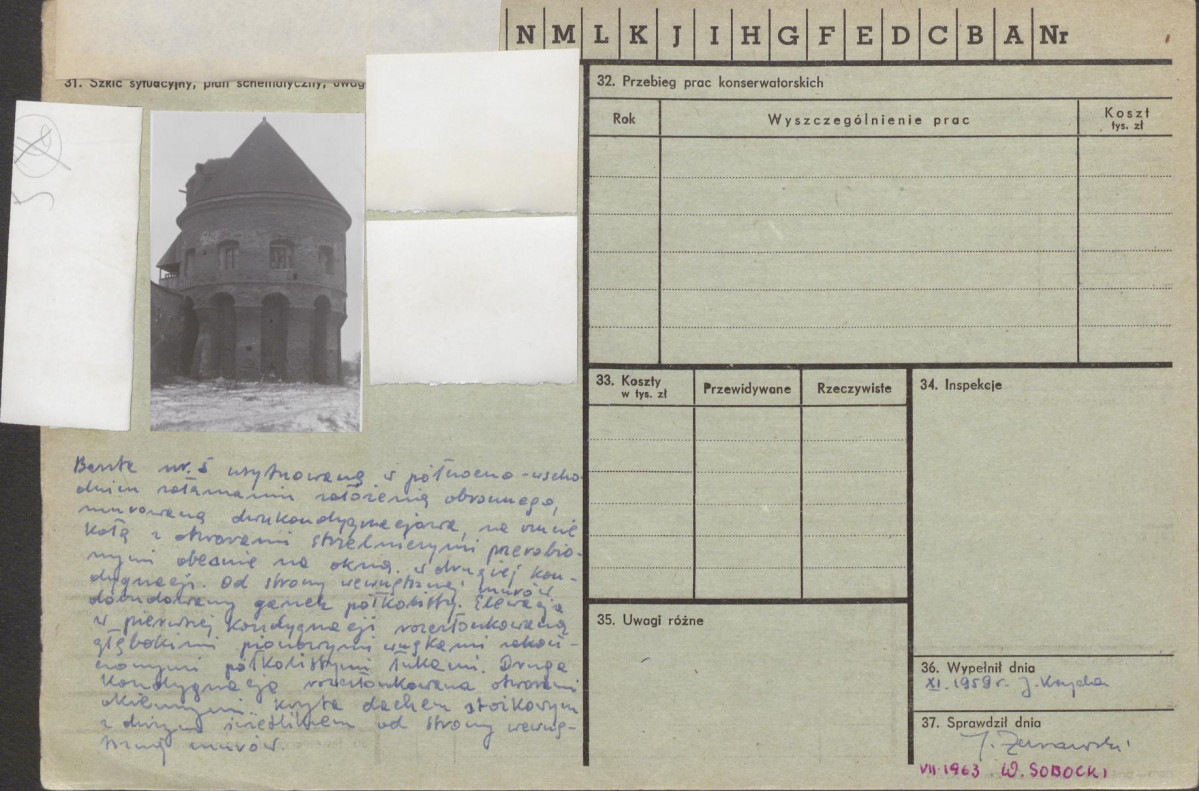 N M L K J I H G F E D C B A Nr
31. Szkic sytuacyjny, plan schematyczny, uwag
32. Przebieg prac konserwatorskich
Rok
Wyszczególnienie prac
Koszt
tys. zł
33. Koszty
w tys. zł
Przewidywane
Rzeczywiste
34. Inspekcje
35. Uwagi różne
36. Wypełnił dnia
XI. 1959 r. J.
37. Sprawdził dnia
VII 1963 W. SOBOCKI
nr. 5 usytuowana w północno-wscho-
dnim załamaniu założenia obronnego,
murowana dwukondygnacjowa, na rzucie
koła z otworami strzelniczymi przerobio-
nymi obecnie na okna. w drugiej kon-
dygnacji. Od strony wewnętrznej murów
dobudowany ganek półkolisty. Elewacja
w pierwszej kondygnacji rozczłonkowana
głębokimi pionowymi wnękami zakoń-
czonymi półkolistymi łukami. Druga
kondygnacja rozczłonkowana otworami
okiennymi. kryta dachem stożkowym
z dużym świetlikiem od strony wewnę-
trznej murów.